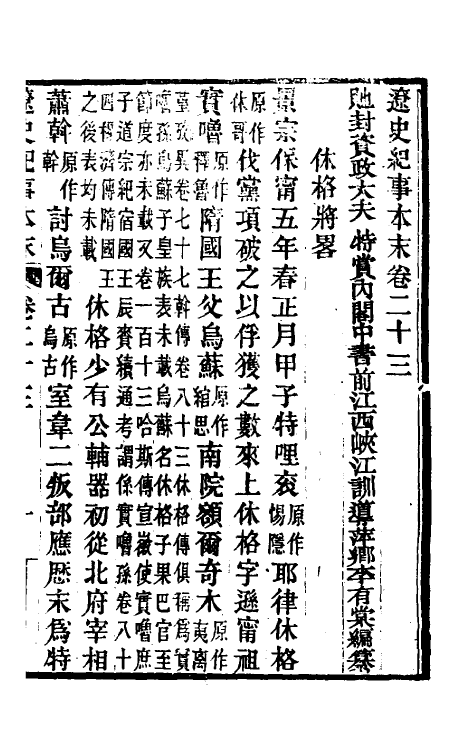 遼史紀事本末卷二十三
馳封資政大夫 特賞內閣中書前江西峽江訓導萍鄉李有棠編纂
休格將畧
景宗保甯五年春正月甲子特哩袞原作惕隱耶律休格
原作休哥伐黨項破之以俘獲之數來上休格字遜甯祖
實嚕原作釋魯隋國王父烏蘇原作綰思南院額爾奇木原作夷離
堇攷異卷七十七斡傳卷八十三休格傳俱稱爲實
嚕孫烏蘇子皇族表未載烏蘇名休格子果巴官至
節度亦未載又卷一百十三哈斯傳宣徽使實嚕庶
子道宗紀宿國王辰賚續通考謂係實嚕孫卷八十
四穆濟傳隋國王
之後表均未載休格少有公輔器初從北府宰相
蕭幹原作斡討烏爾古原作烏古室韋二叛部應厯末爲特
遼史紀事本末 卷二十三 一